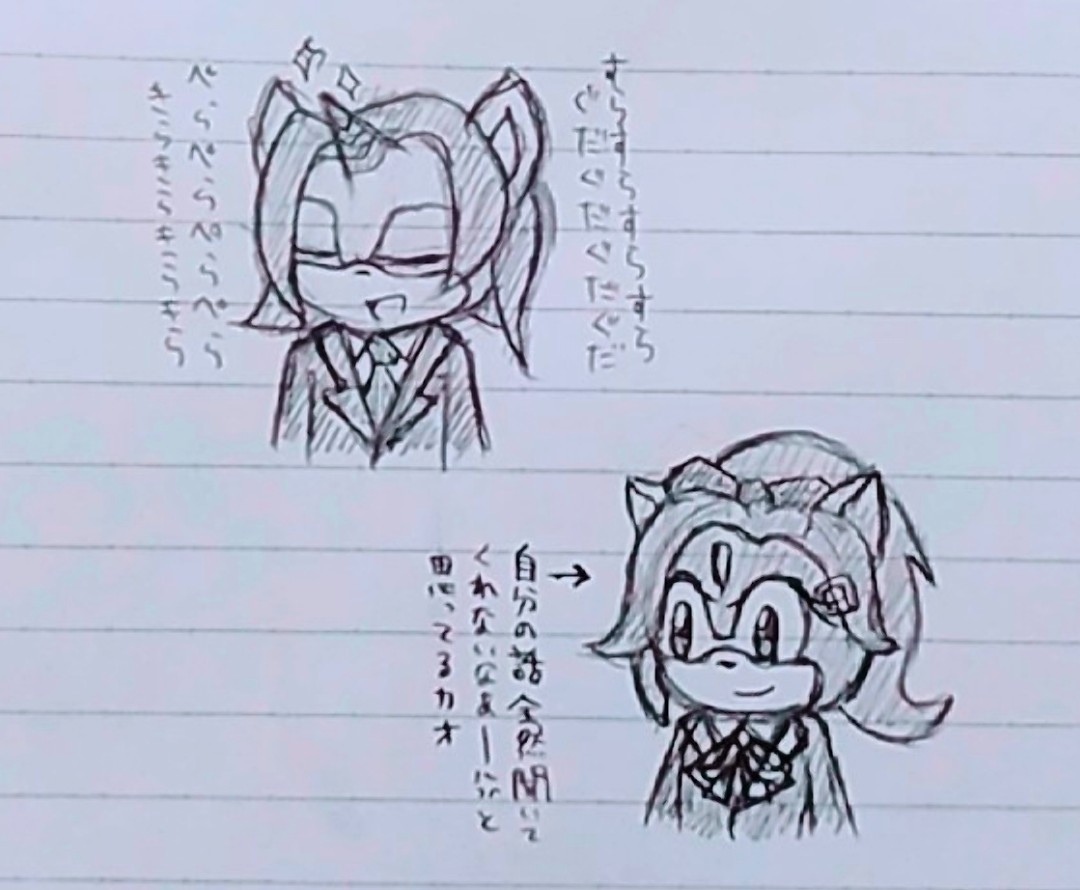 すらすらすらすら
ぐだぐだぐだぐだ
ペらペらペらペら
きらきらきらきら
自分の話全然聞いて
くれないなぁーと
思ってるカオ